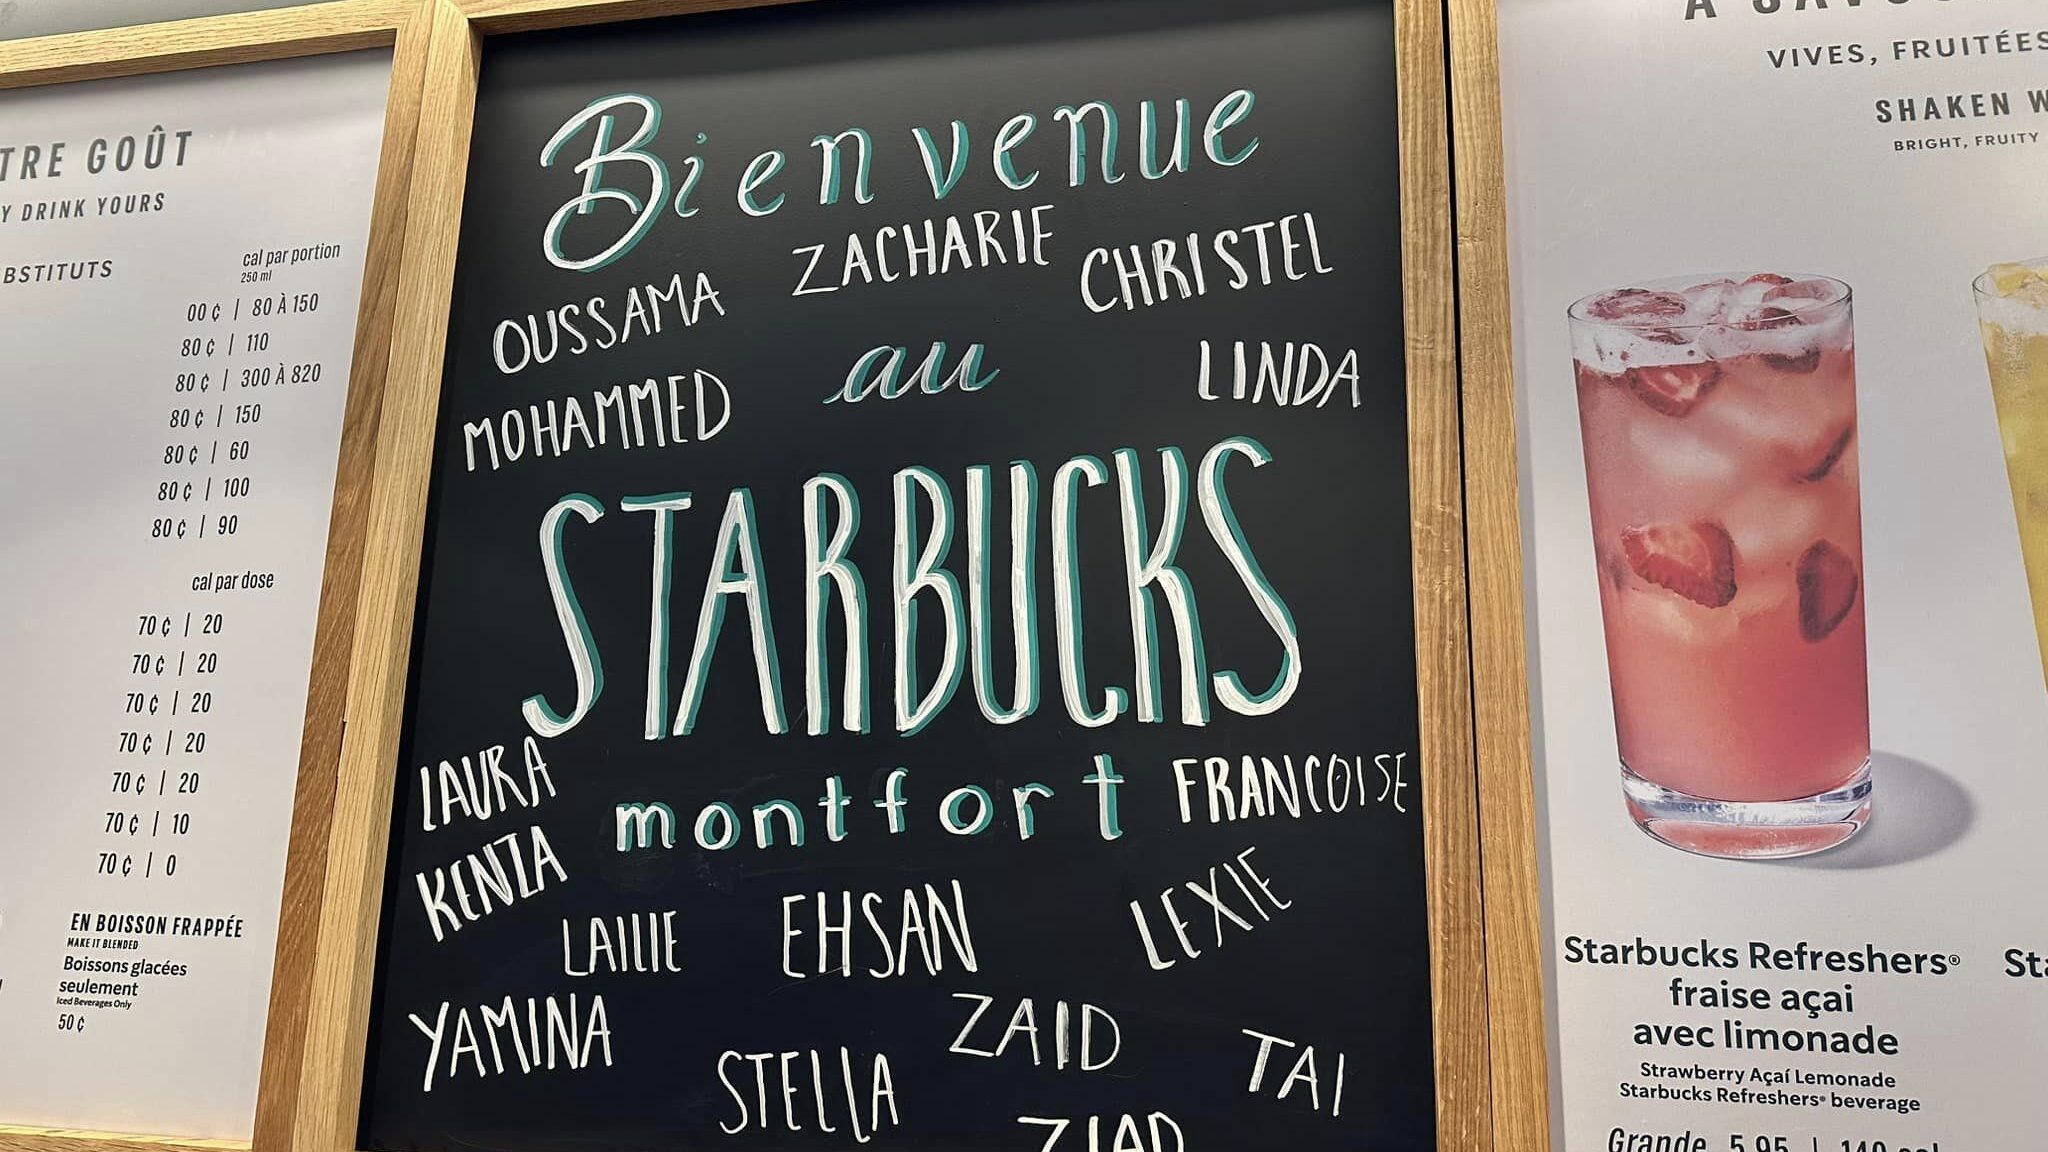 TRE GOÛT
Y DRINK YOURS
BSTITUTS
cal par portion
250 ml
00 ¢ | 80 À 150
80 ¢ | 110
80 ¢ | 300 À 820
80 ¢ | 150
80 ¢ | 60
80 ¢ | 100
80 ¢ | 90
cal par dose
70 ¢ | 20
70 ¢ | 20
70 ¢ | 20
70 ¢ | 20
70 ¢ | 20
70 ¢ | 10
70 ¢ | 0
EN BOISSON FRAPPÉE
MAKE IT BLENDED
Boissons glacées
seulement
Iced Beverages Only
50 ¢
Bienvenue
OUSSAMA ZACHARIE CHRISTEL
MOHAMMED au LINDA
STARBUCKS
LAURA montfort FRANCOISE
KENZA
LAILIE EHSAN LEXIE
YAMINA ZAID TAI
STELLA
ZIAD
VIVES, FRUITÉES
SHAKEN W
BRIGHT, FRUITY
Starbucks Refreshers®
fraise açai
avec limonade
Strawberry Açaí Lemonade
Starbucks Refreshers® beverage
Grande 5.95 | 140 cal
St